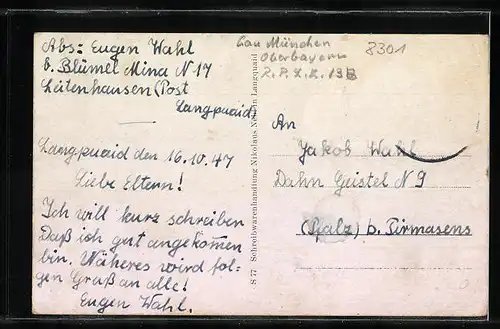 Abs: Eugen Wahl
b. Blümel Mina N 17
Leitenhausen (Post
Langpuaid)
Langpuaid den 16.10.47
Liebe Eltern!
Ich will kurz schreiben
Daß ich gut angekomen
bin. Näheres wird fol-
gen Gruß an alle!
Eugen Wahl.
S 77 Schreibwarenhandlung Nikolaus Langquaid
Gau München
Oberbayern
8301
An
Jakob Wahl
Dahn Geistel N 9
(Pfalz) b. Pirmasens